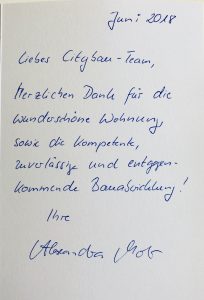 Juni 2018
Liebes Citybau-Team,
Herzlichen Dank für die
wunderschöne Wohnung,
sowie die kompetente,
zuverlässige und entgegen-
kommende Bauabwicklung!
Ihre
Alexandra